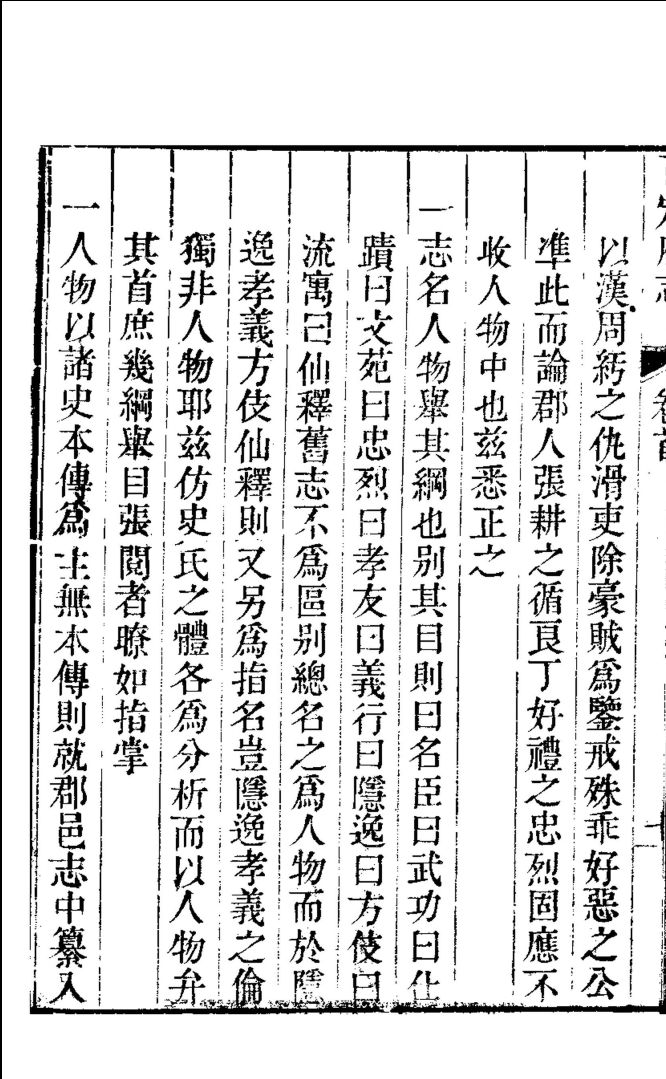 定府志 卷首
以漢周紆之仇滑吏除豪賊爲鑒戒殊乖好惡之公
準此而論郡人張耕之循良丁好禮之忠烈固應不
收人物中也兹悉正之
一志名人物舉其綱也别其目則曰名臣曰武功曰仕
蹟曰文苑曰忠烈曰孝友曰義行曰隱逸曰方伎曰
流寓曰仙釋舊志不爲區别總名之爲人物而於隱
逸孝義方伎仙釋則又另爲指名豈隱逸孝義之倫
獨非人物耶兹仿史氏之體各爲分析而以人物弁
其首庶幾綱舉目張閱者瞭如指掌
一人物以諸史本傳爲主無本傳則就郡邑志中纂入